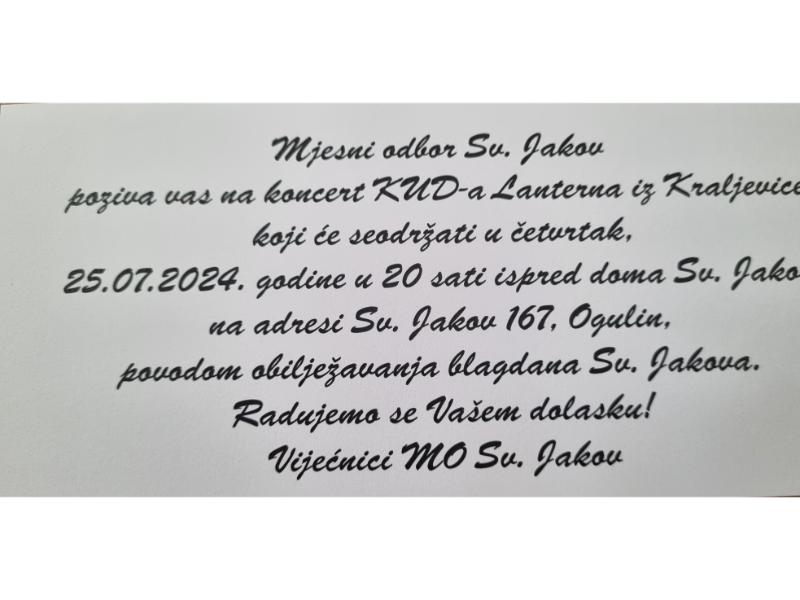 Mjesni odbor Sv. Jakov
poziva vas na koncert KUD-a Lanterna iz Kraljevice
koji će seodržati u četvrtak,
25.07.2024. godine u 20 sati ispred doma Sv. Jako
na adresi Sv. Jakov 167, Ogulin,
povodom obilježavanja blagdana Sv. Jakova.
Radujemo se Vašem dolasku!
Vijećnici MO Sv. Jakov